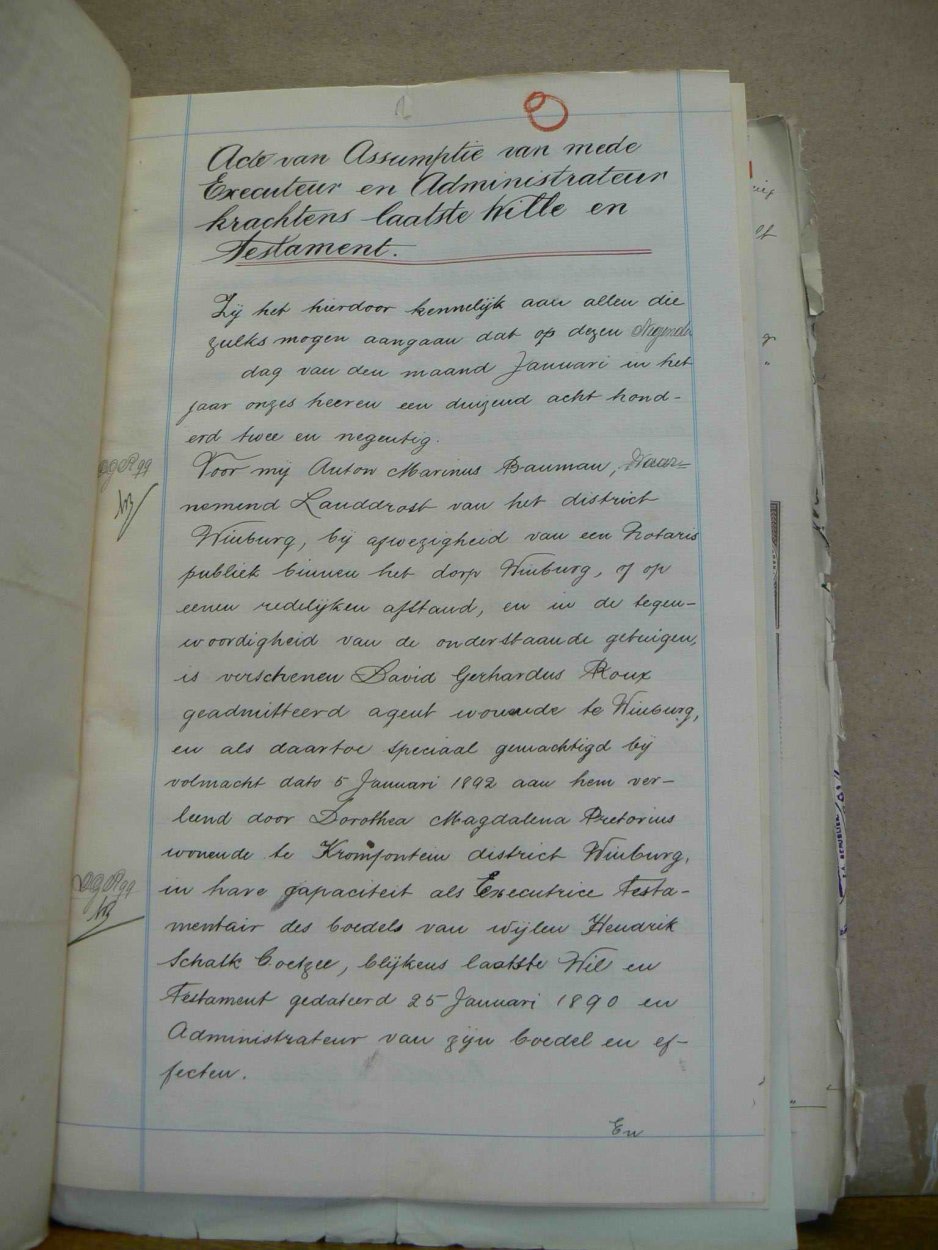 Acte van Assumptie van mede
Executeur en Administrateur
krachtens laatste Wille en
Testament.
Zij het hierdoor kennelijk aan allen die
zulks mogen aangaan dat op dezen
dag van den maand Januari in het
jaar onzes heeren een duizend acht hond-
erd twee en negentig.
Voor mij Anton Marinus Bauman, Waar-
nemend Landdrost van het district
Winburg, bij afwezigheid van een Notaris
publiek binnen het dorp Winburg, of op
eenen redelijken afstand, en in de tegen-
woordigheid van de onderstaande getuigen,
is verschenen David Gerhardus Roux
geadmitteerd agent wonende te Winburg,
en als daartoe speciaal gemachtigd bij
volmacht dato 5 Januari 1892 aan hem ver-
leend door Dorothea Magdalena Pretorius
wonende te Kromfontein district Winburg,
in hare capaciteit als Executrice Testa-
mentair des boedels van wijlen Hendrik
Schalk Coetzee, blijkens laatste Wil en
Testament gedateerd 25 Januari 1890 en
Administrateur van zijn boedel en ef-
fecten.
En